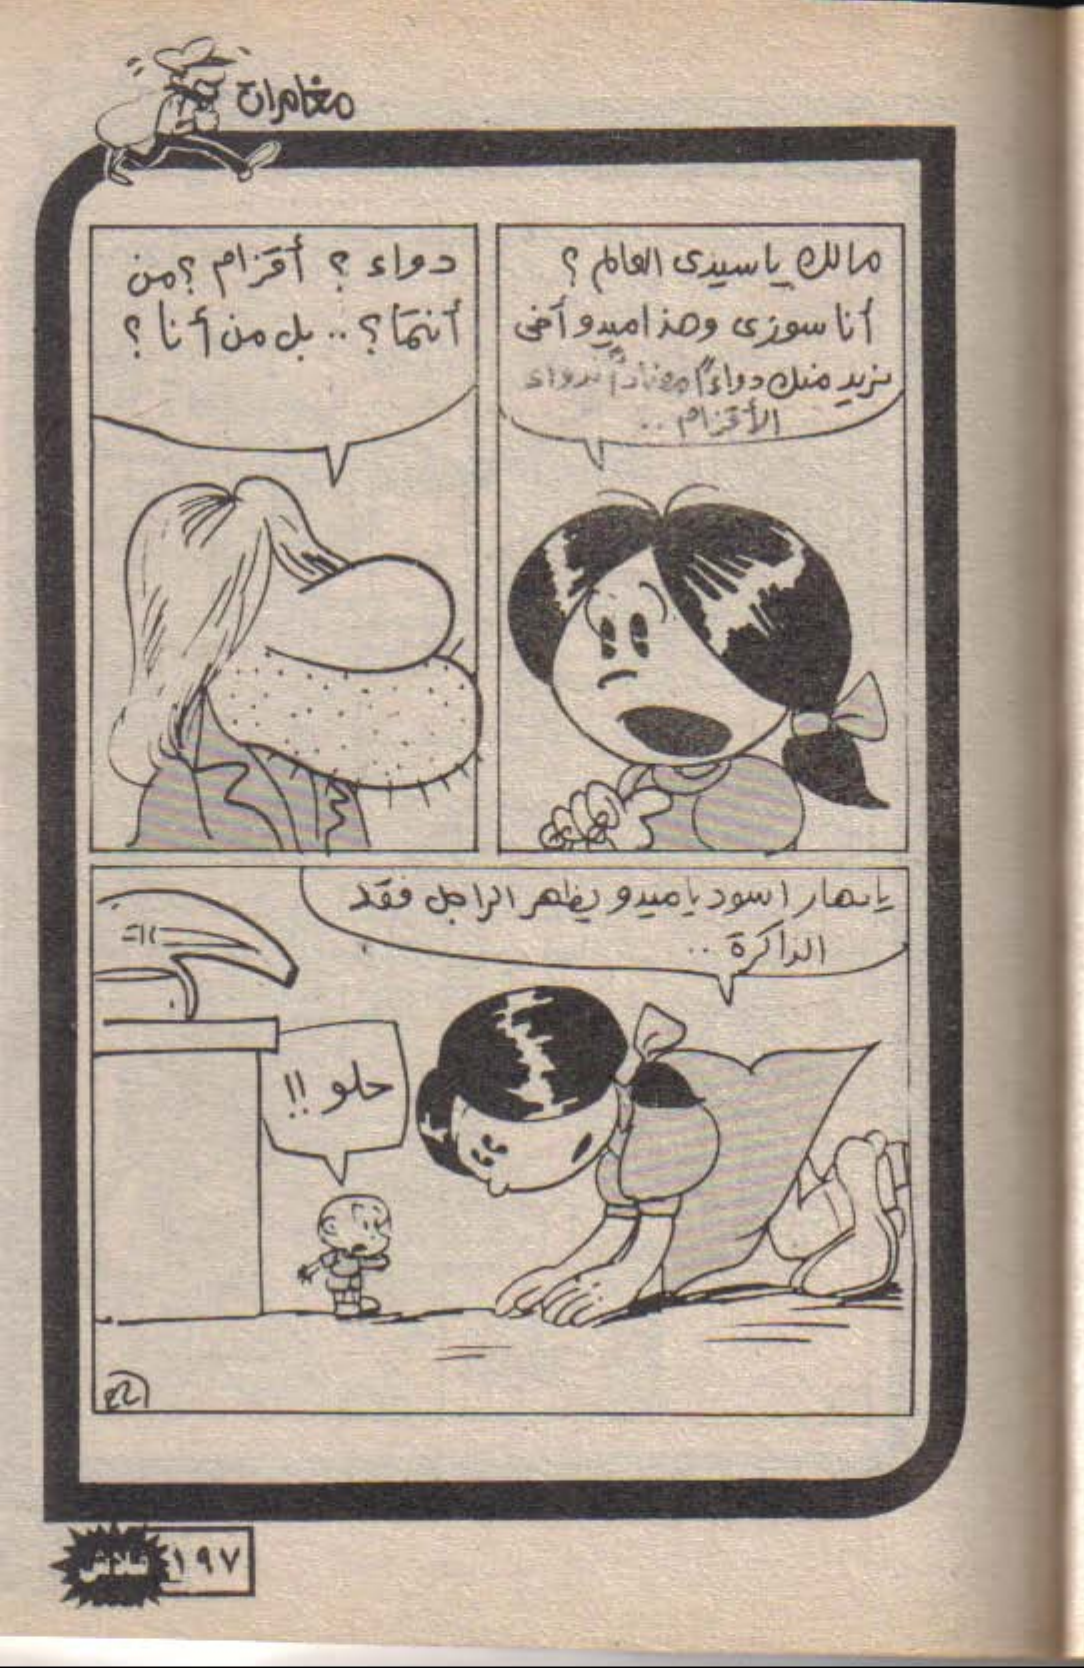 مغامرات
مالك ياسيدى العالم ؟
أنا سوزى وهذا ميدو أخى
نريد منك دواءً مضاداً لدواء
الأقزام ..
دواء ؟ أقزام ؟ من
أنتما ؟ .. بل من أنا ؟
يانهار اسود ياميدو يظهر الراجل فقد
الذاكرة ..
حلو !!
١٩٧
فلاش